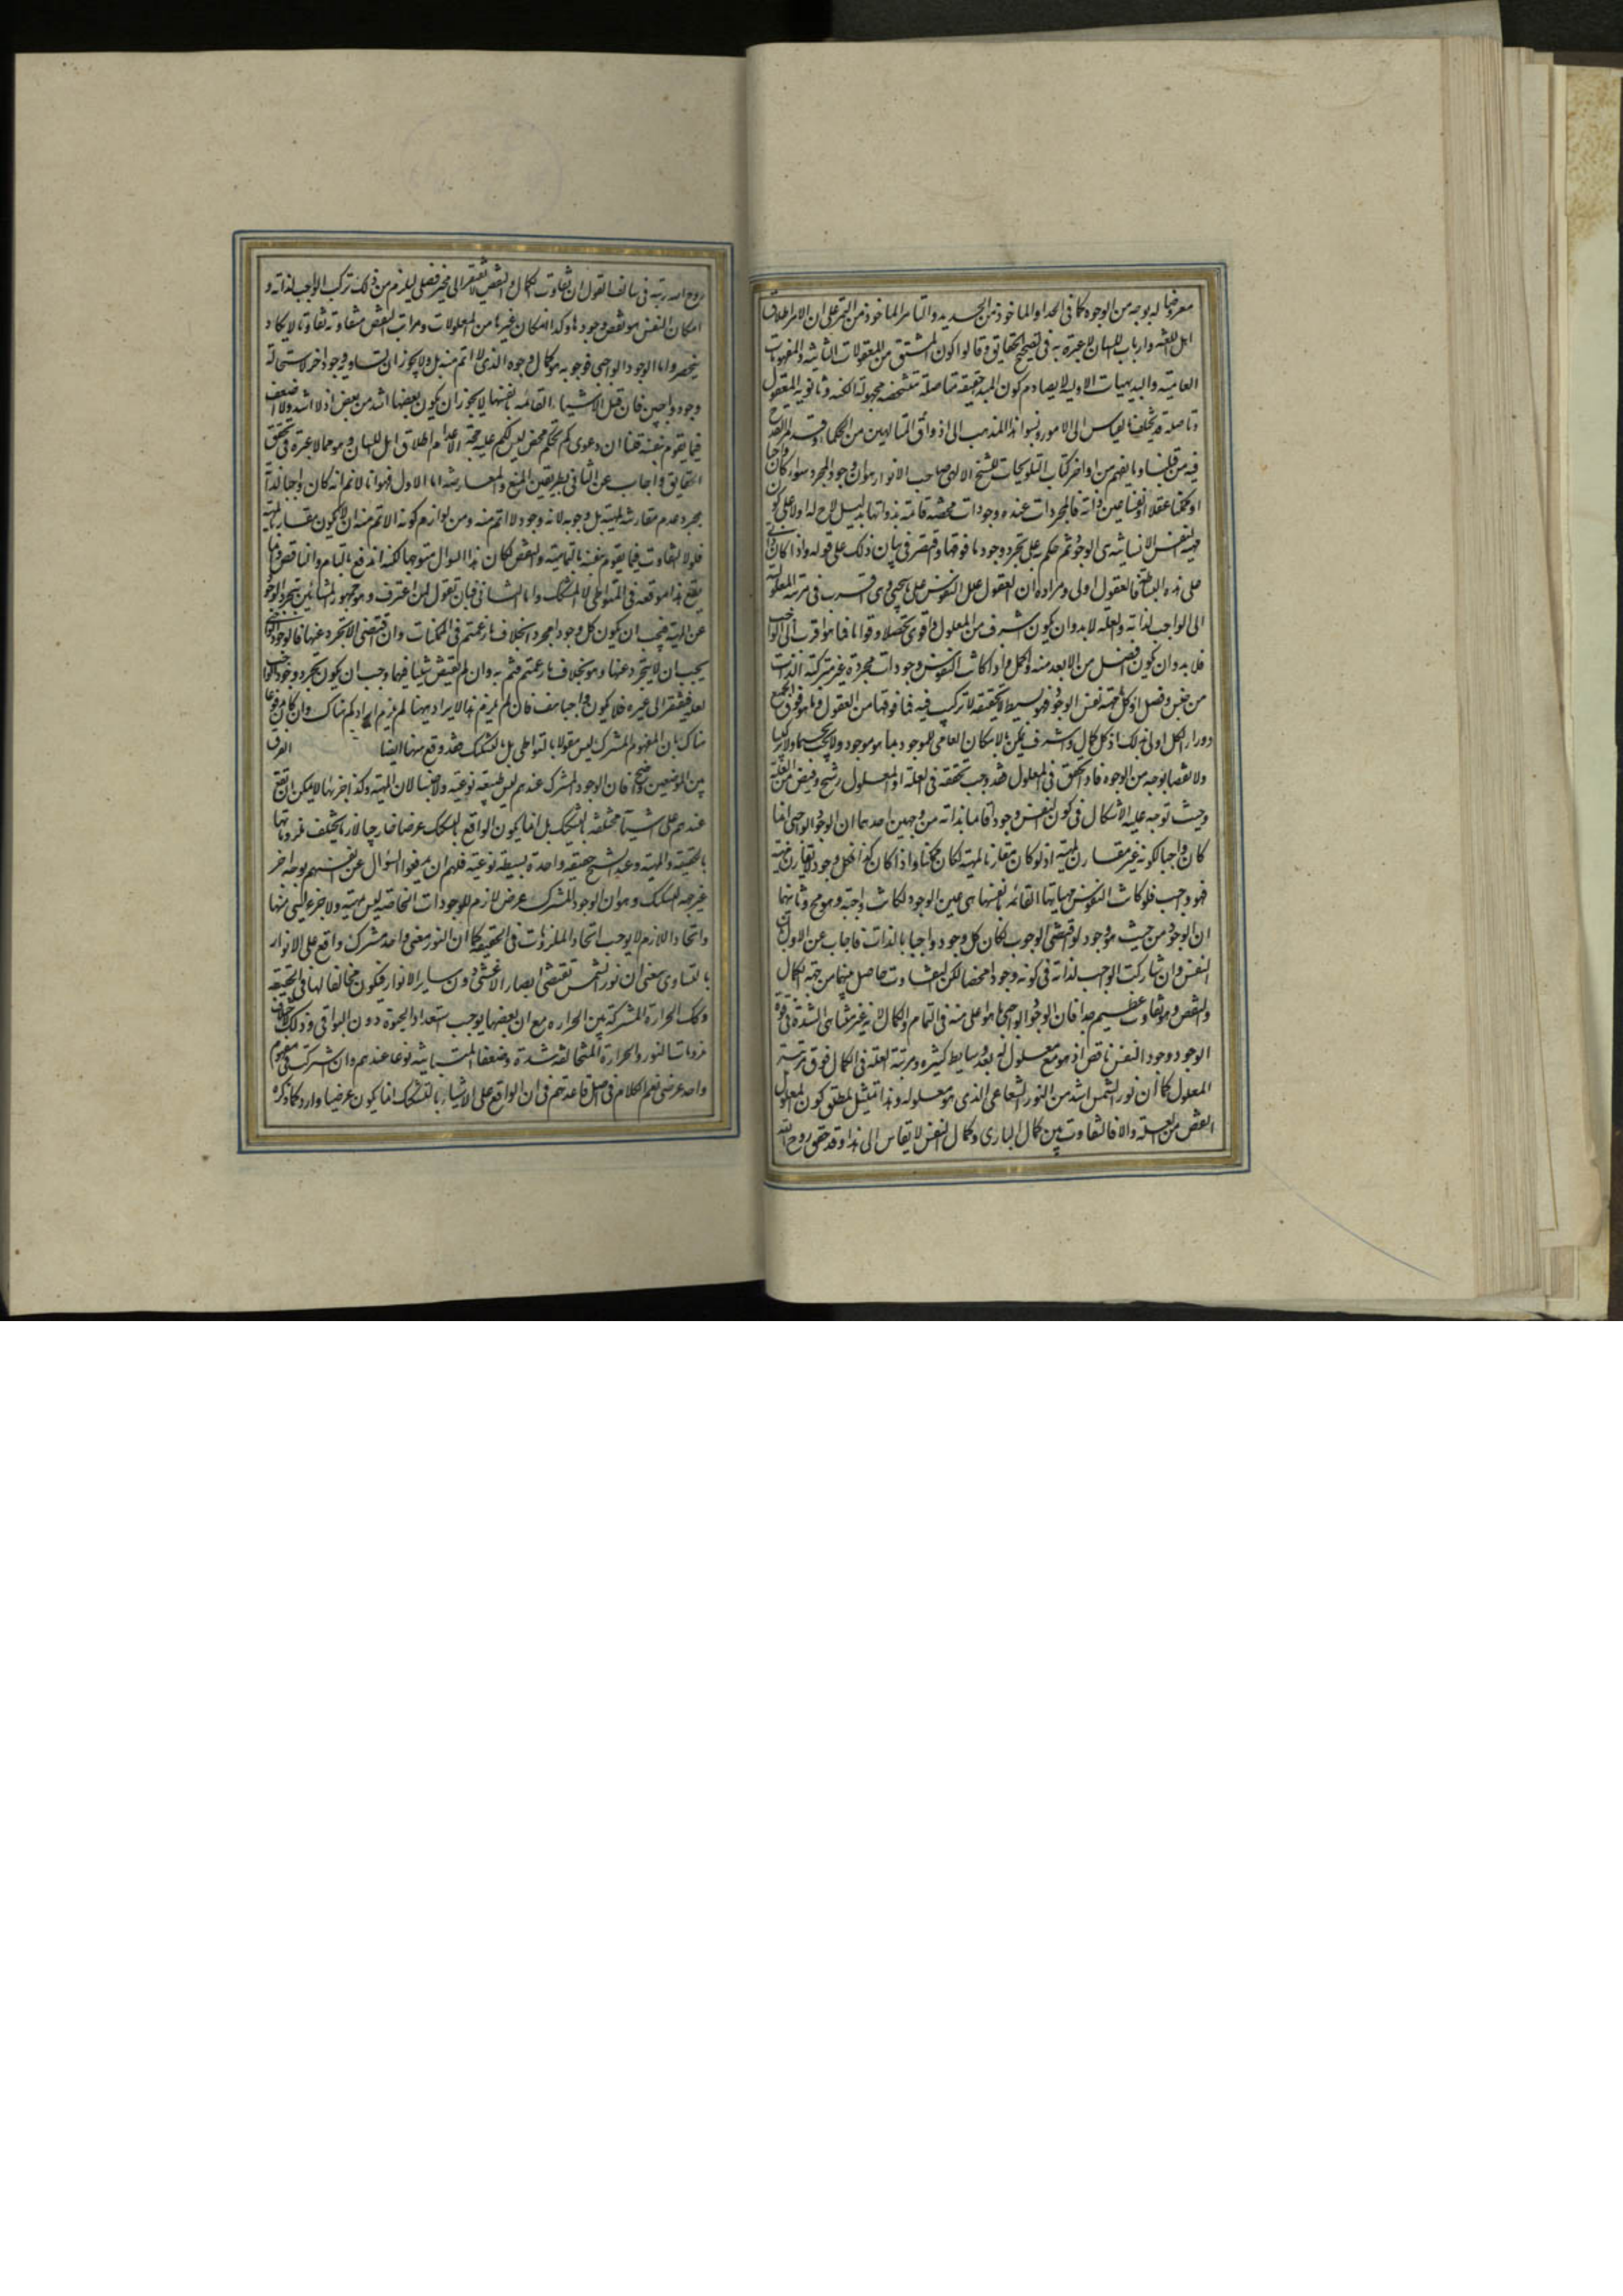 معروضا له بوجه من الوجوه كما فى الحداد الماخوذ من الحديد والتامر الماخوذ من التمر على ان الامر اطلاقات
اهل اللغة وارباب اللسان لا عبرة به فى تصحيح الحقايق وقالوا كون المشتق من المعقولات الثانية والمفهومات
العامية والبديهيات الاولية لا يصادم كون المبدء حقيقة متاصلة متشخصة مجهولة الكنه وثانوية المعقول
وتاصله قد يختلف بالقياس الى الامور ونسبوا هذا المذهب الى اذواق المتالهين من الحكماء وقد مر القدح
فيه من قبلنا وما يفهم من اواخر كتاب التلويحات للشيخ الالهى صاحب الانوار هو ان وجود المجرد سواء كان واجبا
او ممكنا عقلا او نفسا عين ذاته فالمجردات عنده وجودات محضة قائمة بذواتها بدليل لاح له اولا على كون
مهية النفس الانسانية هى الوجود ثم حكم به على تجرد وجود ما فوقها واقتصر فى بيان ذلك على قوله واذا كان ذاتى
على هذه البساطة فالعقول اولى ومراده ان العقول علل النفوس على ما سيجئ وهى اقرب فى مرتبة المعلولية
الى الواجب لذاته والعلة لابد وان يكون اشرف من المعلول واقوى تحصلا وقواما فما هو اقرب الى الواجب
فلابد وان يكون افضل من الابعد منه واكمل فاذا كانت النفوس وجودات مجردة غير متركبة الذات
من جنس وفصل اذ كل مهيته نفس الوجود فهو بسيط الحقيقة لا تركب فيه فما فوقها من العقول وما هو فوق الجميع
ووراء الكل اولى بذلك اذ كل كمال وشرف يمكن بالامكان العامى للموجود بما هو موجود ولا يوجب تجسما ولا تركبا
ولا نقصا بوجه من الوجوه فاذا تحقق فى المعلول فقد وجب تحققه فى العلة اذ المعلول رشح وفيض من العلة
وحيث توجه عليه الاشكال فى كون النفس وجودا قائما بذاته من وجهين احدهما ان الوجود الواجبى انما
كان واجبا لكونه غير مقارن لمهية اذ لو كان مقارنا لمهية لكان ممكنا واذا كان كذا فكل وجود لا يقارن مهية
فهو واجب فلو كانت النفوس مهياتها القائمة بنفسها هى عين الوجود لكانت واجبة وهو مح وثانيهما
ان الوجود من حيث هو وجود لو اقتضى الوجوب لكان كل وجود واجبا بالذات فاجاب عن الاول بان
النفس وان شاركت الواجب لذاته فى كونه وجودا محضا لكن التفاوت حاصل بينهما من جهة الكمال
والنقص وهو تفاوت عظيم جدا فان الوجود الواجبى لا ما هو اعلى منه فى التمام والكمال لانه غير متناهى الشدة فى قوة
الوجود ووجود النفس ناقص اذ هو مع معلول له بعد وسايط كثيرة ومرتبة العلة فى الكمال فوق مرتبة
المعلول كما ان نور الشمس اشد من النور الشعاعى الذى هو معلوله وهذا تمثيل لمطلق كون المعلول
انقص من العلة والا فالتفاوت بين كمال البارى وكمال النفس لا يقاس الى هذا وقد حقق روح الله
روح الله رتبه فى سالف القول ان تفاوت الكمال والنقص لا يفتقر الى مميز فصلى ليلزم من ذلك تركب الواجب لذاته و
امكان النفس هو نقص وجودها وكذا امكان غيرها من المعلولات ومراتب النقص متفاوتة تفاوتا لا يكاد
ينحصر واما الوجود الواجبى فوجوبه هو كمال وجوده الذى لا اتم منه بل ولا يجوز ان يساويه وجود اخر لاستحالة
وجود واجبين فان قيل الاشياء القائمة بنفسها لا يجوز ان يكون بعضها اشد من بعض اذ لا اشد ولا اضعف
فيما يقوم بنفسه قلنا ان دعوى كم تحكم محض ليس لكم عليه حجة الا عدم اطلاق اهل اللسان وهو مما لا عبرة فى تحقق
الحقايق واجاب عن الثانى بطريقين المنع والمعارضة اما الاول فهو انا لا نم انه كان واجبا لذاته
بمجرد عدم مقارنة المهية بل وجوبه لانه وجود لا اتم منه ومن لوازم كونه الاتم منه ان لا يكون مقارنا لمهية
فلو لا التفاوت فيما يقوم بنفسه بالتمامية والنقص لكان هذا السوال متوجها لكنه اندفع بالتام والناقص وما
يقع هذا موقعه فى المتواطى لا المشكك واما الثانى فبان تقول لمن اعترف وهو جمهور المشائين بتجرد الوجود
عن المهية فيجب ان يكون كل وجود مجردا بخلاف ما زعمتم فى الممكنات وان اقتضى الا تجرد عنها فالوجود الواجبى
يجب ان لا يتجرد عنها وهو بخلاف ما زعمتم فثم به وان لم يقتض شيئا فيهما وجب ان يكون تجرد وجود الواجب
لعلة فيفتقر الى غيره فلا يكون واجبا هف فان لم يلزم هذا الايراد هيهنا لم يلزم ايرادكم هناك وان كان مرفوعا
هناك بان المفهوم المشترك ليس مقولا بالتواطى بل بالتشكيك فقد وقع منها ايضا الفرق
بين الموضعين واضح فان الوجود المشترك عندهم ليس طبيعة نوعية ولا جنسا لان المهية وكذا جزئها لا يمكن ان تقع
عندهم على اشياء مختلفة بالتشكيك بل انما يكون الواقع بالتشكيك عرضا خارجيا لازما يختلف ملزوماتها
بالحقيقة والمهية وعند الشيخ حقيقة واحدة بسيطة نوعية فلهم ان يدفعوا السؤال عن نفسهم بوجه اخر
غير جهة التشكيك وهو ان الوجود المشترك عرض لازم للوجودات الخاصة ليس مهية ولا جزء لشئ منها
واتحاد اللازم لا يوجب اتحاد الملزومات فى الحقيقة كما ان النور معنى واحد مشترك واقع على الانوار
بالتساوى معنى ان نور الشمس تقتضى ابصار الاعشى دون ساير الانوار فيكون مخالفا لها فى الحقيقة
وكك الحرارة المشتركة بين الحرارة مع ان بعضها يوجب استعداد الحيوة دون البواقى وذلك لاختلاف
ملزومات النور والحرارة المتخالفة شدة وضعفا المتباينة نوعا عندهم وان اشتركت فى مفهوم
واحد عرضى نعم الكلام فى اصل قاعدتهم فى ان الواقع على الاشياء بالتشكيك انما يكون عرضيا وارد كما ذكره